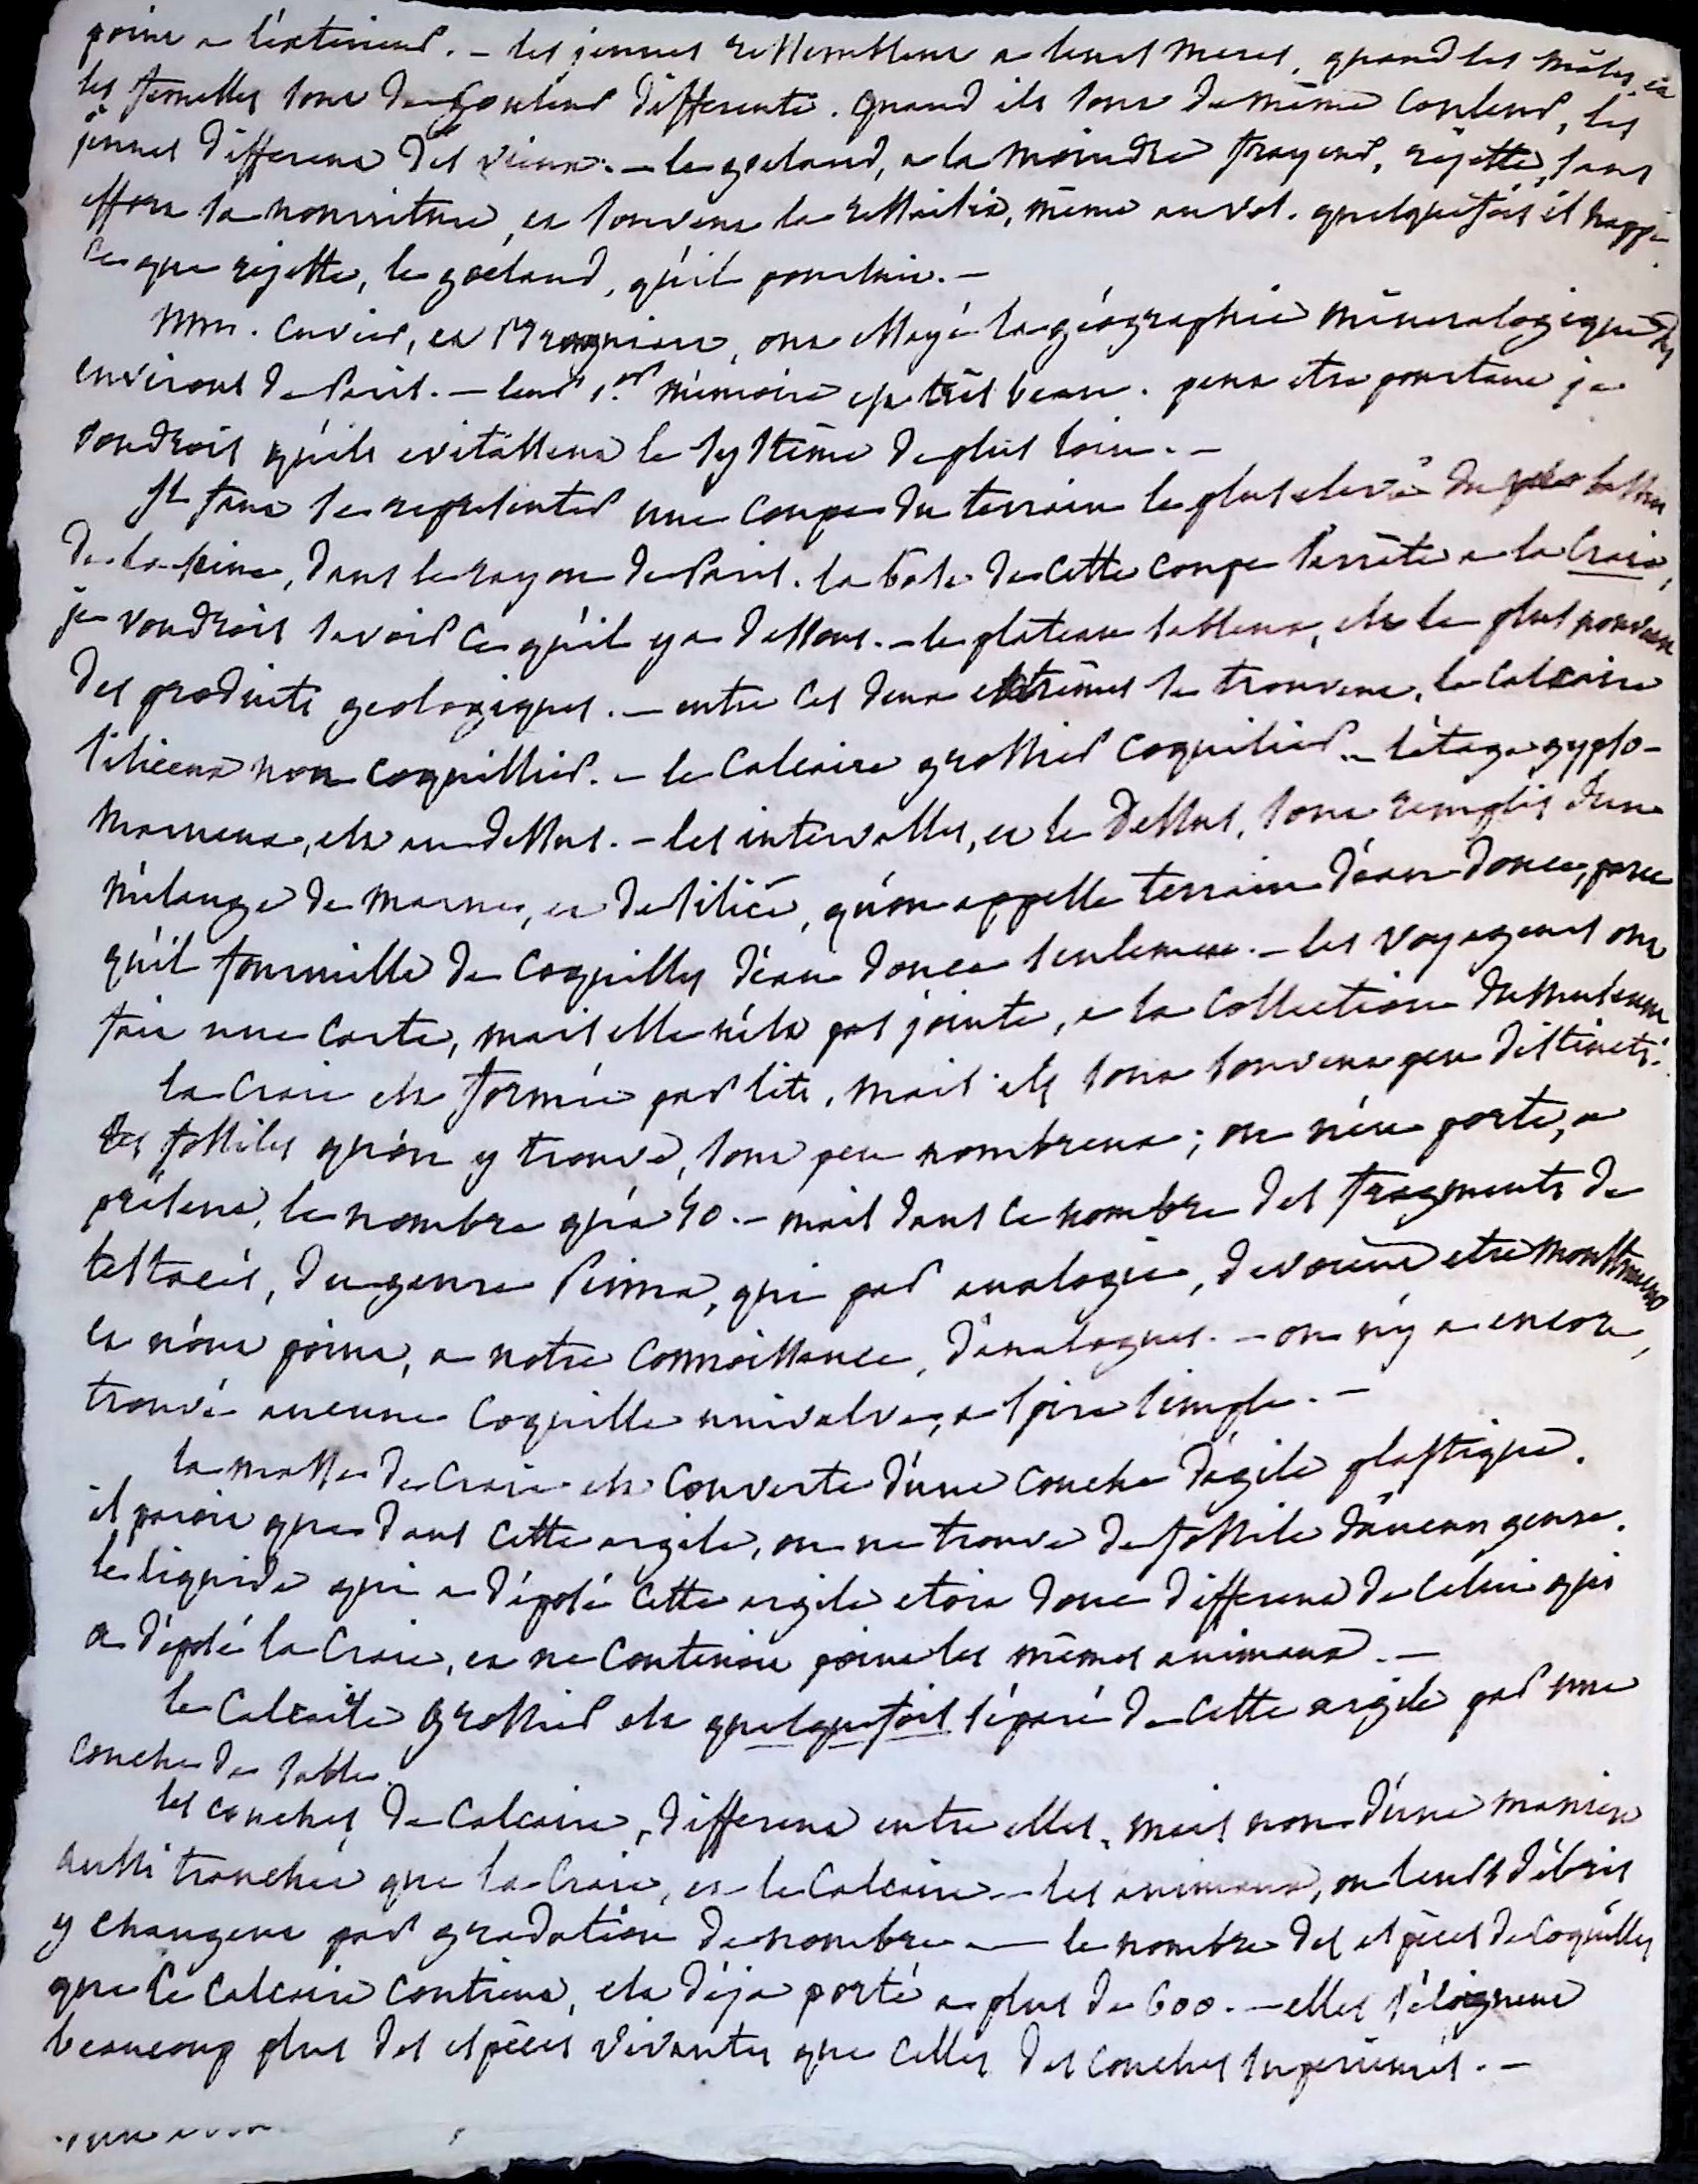 point a l'exterieur. – les jeunes ressemblent a leurs meres, quand les mâles, et
les femelles sont de couleur differente. quand ils sont de même couleur, les
jeunes different des vieux. – le goeland, a la moindre frayeur, rejette, sans
effort sa nourriture, et souvent la ressaisit, même au vol. quelquefois il happe
ce que rejette, le goeland, qu'il poursuit. –
Mrs. Cuvier, et Brogniart, ont essayé la géographie minéralogique des
environs de Paris. – leur 1.er mémoire est très beau. peut etre pourtant je
voudrois qu'ils evitassent le systême de plus loin. –
Il faut se representer une coupe du terrain le plus elevé du bassin
de la Seine, dans le rayon de Paris. la base de cette coupe s'arrête a la Craie,
je voudrois savoir ce qu'il y a dessous. – le plateau sableux, est le plus nouveau
des produits geologiques. – entre ces deux extrêmes se trouvent, le Calcaire
siliceux non coquillier. – le Calcaire grossier coquilier – l'étage gypso-
marneux, est au dessus. – les intervalles, et le dessus, sont remplis d'un
mélange de marne, et de silice, qu'on appelle terrain d'eau douce, parce
qu'il fourmille de coquilles d'eau douce seulement. – les voyageurs ont
fait une carte, mais elle n'est pas jointe, a la collection du muséum
la Craie est formée par lits, mais ils sont souvent peu distincts.
Les fossiles qu'on y trouve, sont peu nombreux ; on n'en porte, a
présent, le nombre qu'a 50. – mais dans ce nombre des fragments de
testacés, du genre Pinna, qui par analogie, devoient etre monstrueux
et n'ont point, a notre connoissance, d'analogues. – on n'y a encore,
trouvé aucune coquille univalve, a spire simple. –
la masse de craie est couverte d'une couche d'agile plastique.
il paroit que dans cette argile, on ne trouve de fossile d'aucun genre.
le liquide qui a déposé cette argile etoit donc different de celui qui
a déposé la Craie, et ne contenoit point les mêmes animaux. –
le Calcaire grossier est quelquefois séparé de cette argile par une
couche de sable.
les couches de Calcaire, different entre elles, mais non d'une maniere
aussi tranchée que la Craie, et le Calcaire – les animaux, ou leurs débris
y changent par gradation de nombre – le nombre des espèces de coquilles
que le Calcaire contient, est déja porté a plus de 600. – elles s'éloignent
beaucoup plus des espèces vivantes que celles des couches superieures. –